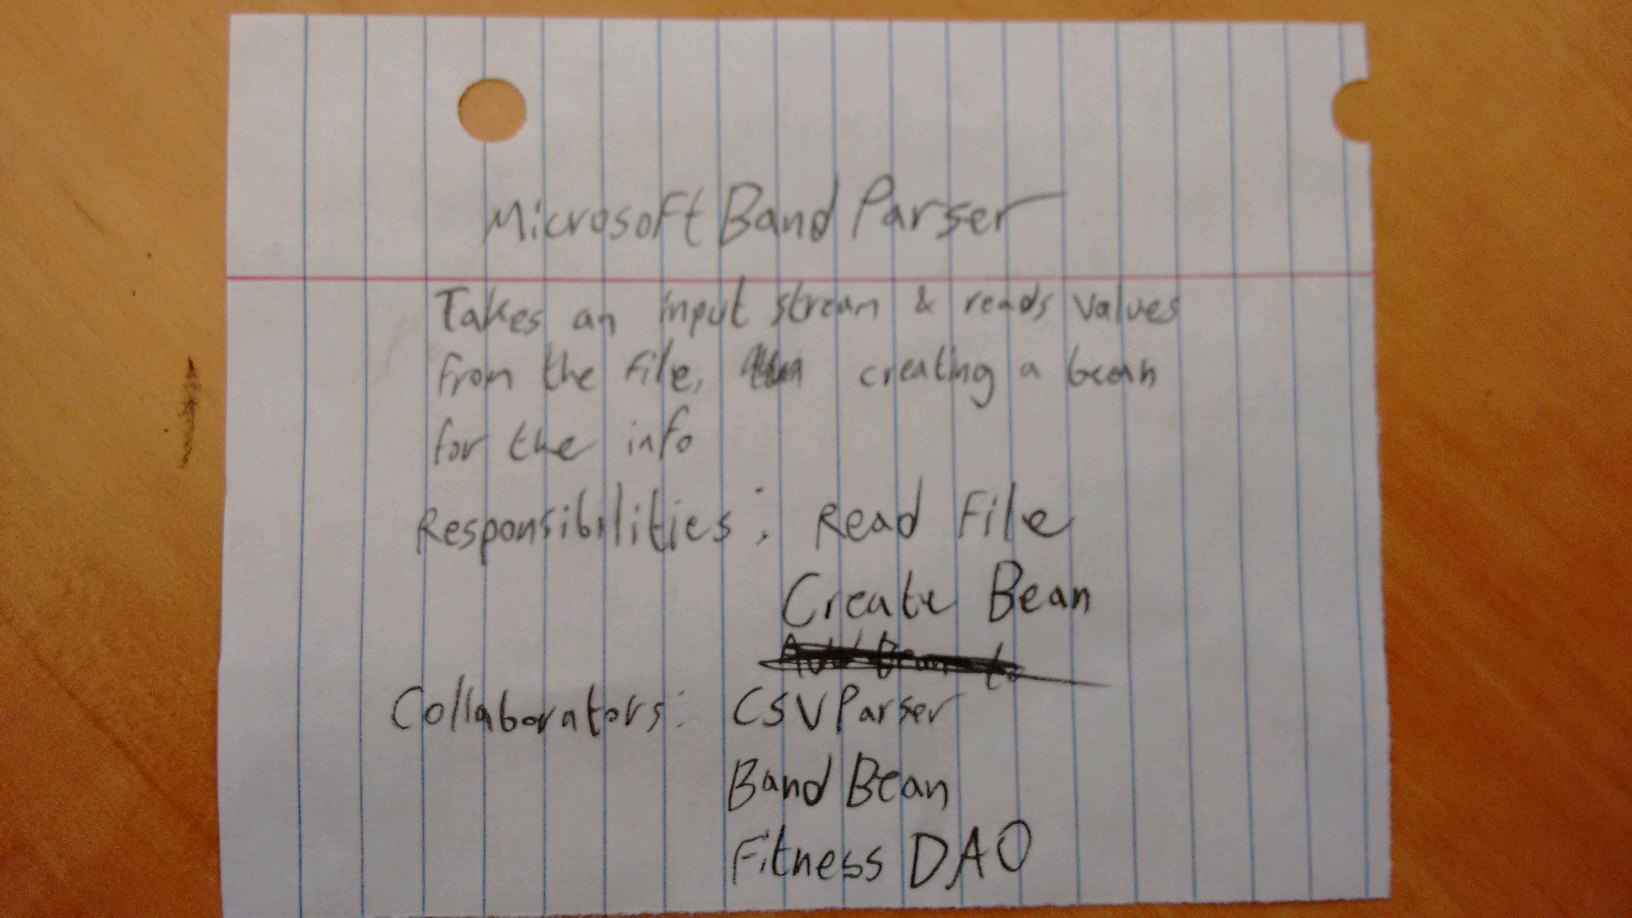 Microsoft Band Parser
Takes an input stream & reads values
from the file, creating a bean
for the info
Responsibilities: Read File
Create Bean
Collaborators: CSVParser
Band Bean
Fitness DAO